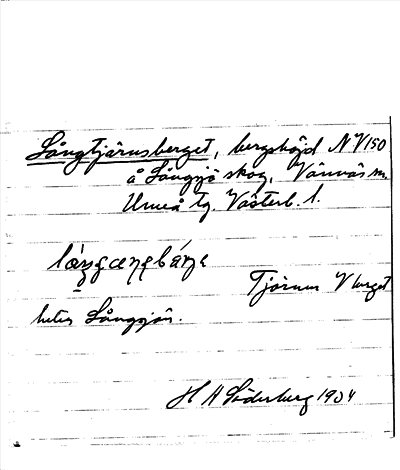 Långtjärnsberget, bergshöjd N V 150
å Långsjö skog, Vännäs sn.
Umeå tg. Västerb. l.
Tjärnen V berget
heter Långsjön.
H A Söderberg 1904